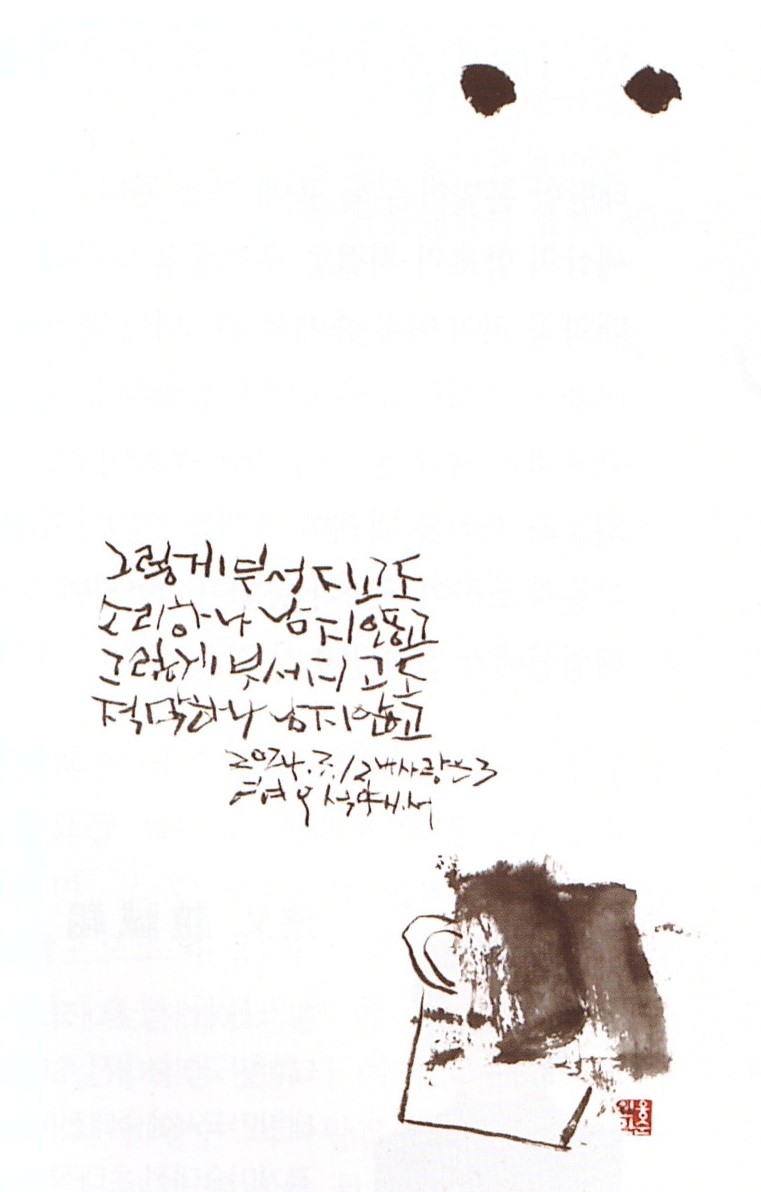 그렇게 부서지고도
소리하나 남지않고
그렇게 부서지고도
적막하나 남지않고
2024.3.12 내사랑은3
석야.서
웅순